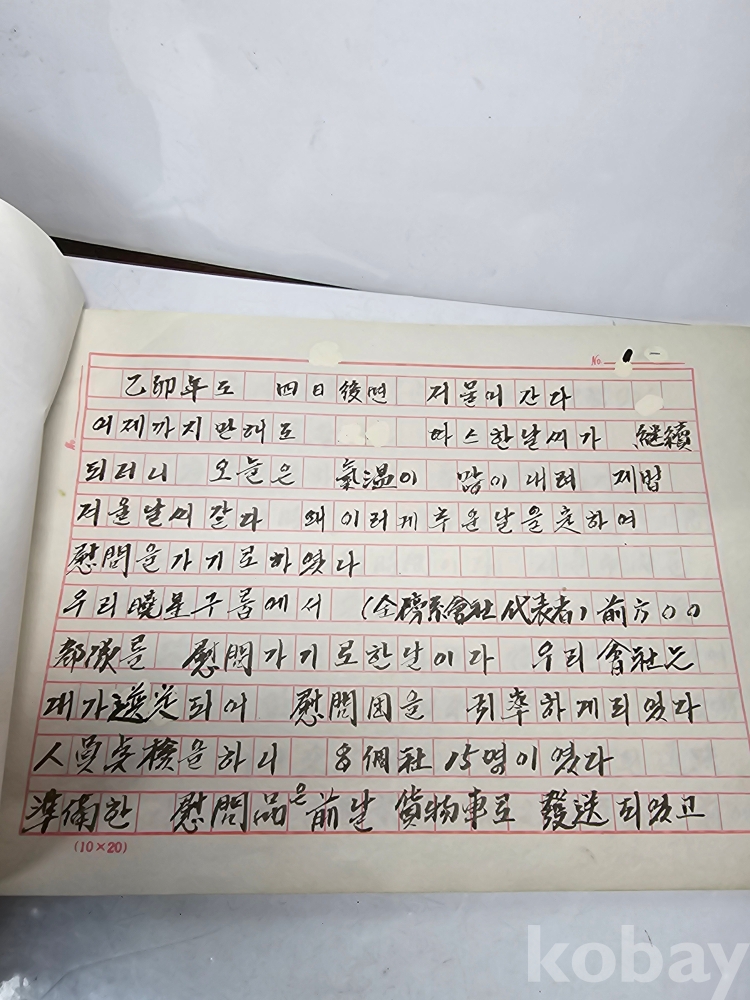 No. 1
乙卯年도 四日後면 저물어 간다
어제까지만해도 따스한날씨가 継續
되더니 오늘은 氣温이 많이 내려 제법
겨울날씨 같다 왜 이러게 추운날을 택하여
慰問을가기로하였다
우리曉星구룹에서 (全系會社 代表者) 前方00
部隊를 慰問가기로한날이다 우리 會社는
내가 選定되어 慰問団을 引率하게되였다
人員点檢을하니 8個社 15명이였다
準備한 慰問品은 前날 貨物車로 發送되였고
(10×20)
kobay